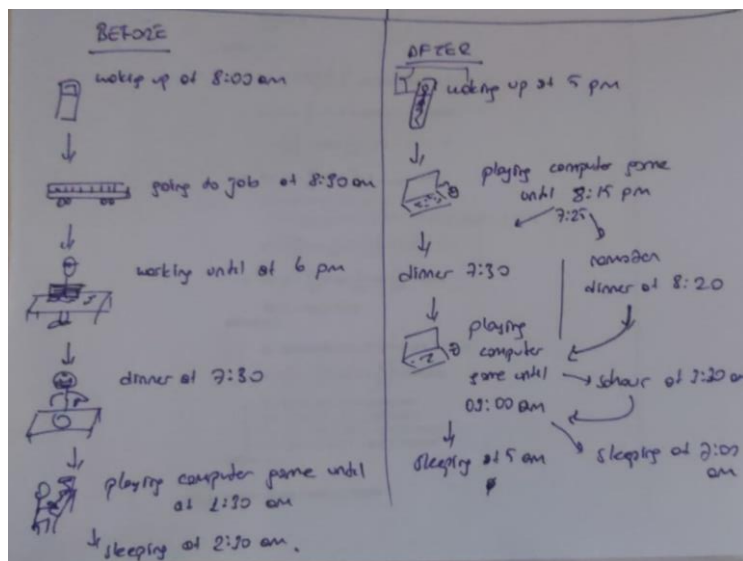 BEFORE
waking up at 8:00 am
going to job at 8:30 am
working until at 6 pm
dinner at 7:30
playing computer game until
at 1:30 am
sleeping at 2:30 am.
AFTER
waking up at 5 pm
playing computer game
until 8:15 pm
7:25
dinner 7:30
ramadan
dinner at 8:20
playing
computer
game until
sahour at 3:30 am
03:00 am
sleeping at 5 am
sleeping at 7:00
am